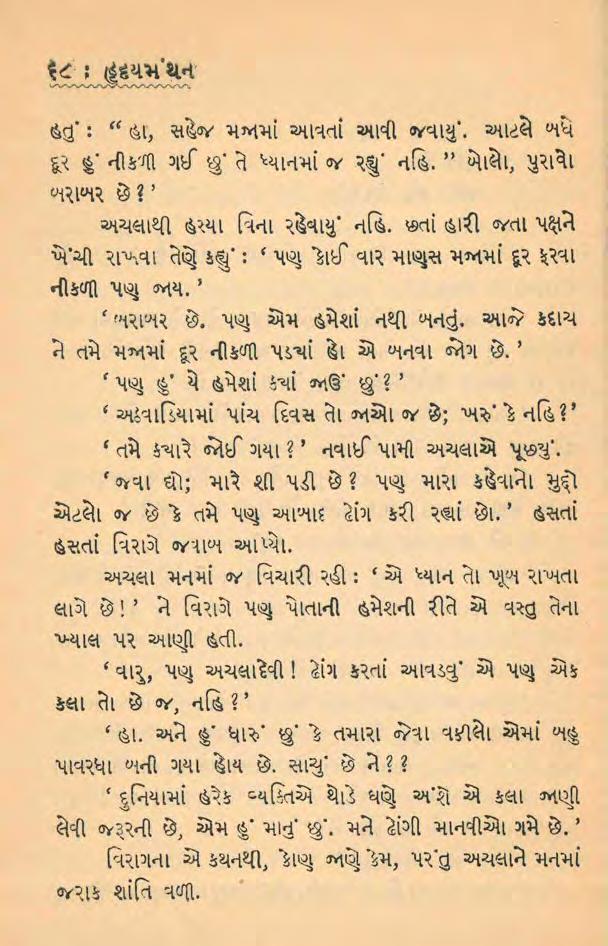 ૬૮ : હૃદયમંથન
હતું : “ હા, સહેજ મઝામાં આવતાં આવી જવાયું. આટલે બધે
દૂર હું નીકળી ગઈ છું તે ધ્યાનમાં જ રહ્યું નહિ. ” બોલો, પુરાવો
બરાબર છે ? ’
અચલાથી હસ્યા વિના રહેવાયું નહિ. છતાં હારી જતા પક્ષને
ખેંચી રાખવા તેણે કહ્યું : ‘ પણ કોઈ વાર માણસ મઝામાં દૂર ફરવા
નીકળી પણ જાય. ’
‘ બરાબર છે. પણ એમ હમેશાં નથી બનતું. આજે કદાચ
ને તમે મઝામાં દૂર નીકળી પડચાં હો એ બનવા જોગ છે. ’
‘ પણ હું યે હમેશાં કયાં જાઉં છું ? ’
‘ અઠવાડિયામાં પાંચ દિવસ તો જાઓ જ છે; ખરું કે નહિ ? ’
‘ તમે કયારે જોઈ ગયા ? ’ નવાઈ પામી અચલાએ પૂછયું.
‘ જવા દ્યો; મારે શી પડી છે ? પણ મારા કહેવાનો મુદ્દો
એટલો જ છે કે તમે પણ આબાદ ઢોંગ કરી રહ્યાં છો. ’ હસતાં
હસતાં વિરાગે જવાબ આપ્યો.
અચલા મનમાં જ વિચારી રહી : ‘ એ ધ્યાન તો ખૂબ રાખતા
લાગે છે ! ’ ને વિરાગે પણ પોતાની હમેશની રીતે એ વસ્તુ તેના
ખ્યાલ પર આણી હતી.
‘ વારુ, પણ અચલાદેવી ! ઢોંગ કરતાં આવડવું એ પણ એક
કલા તો છે જ, નહિ ? ’
‘ હા. અને હું ધારું છું કે તમારા જેવા વકીલો એમાં બહુ
પાવરધા બની ગયા હોય છે. સાચું છે ને ? ?
‘ દુનિયામાં હરેક વ્યક્તિએ થોડે ઘણે અંશે એ કલા જાણી
લેવી જરૂરની છે, એમ હું માનું છું. મને ઢોંગી માનવીઓ ગમે છે. ’
વિરાગના એ કથનથી, કોણ જાણે કેમ, પરંતુ અચલાને મનમાં
જરાક શાંતિ વળી.